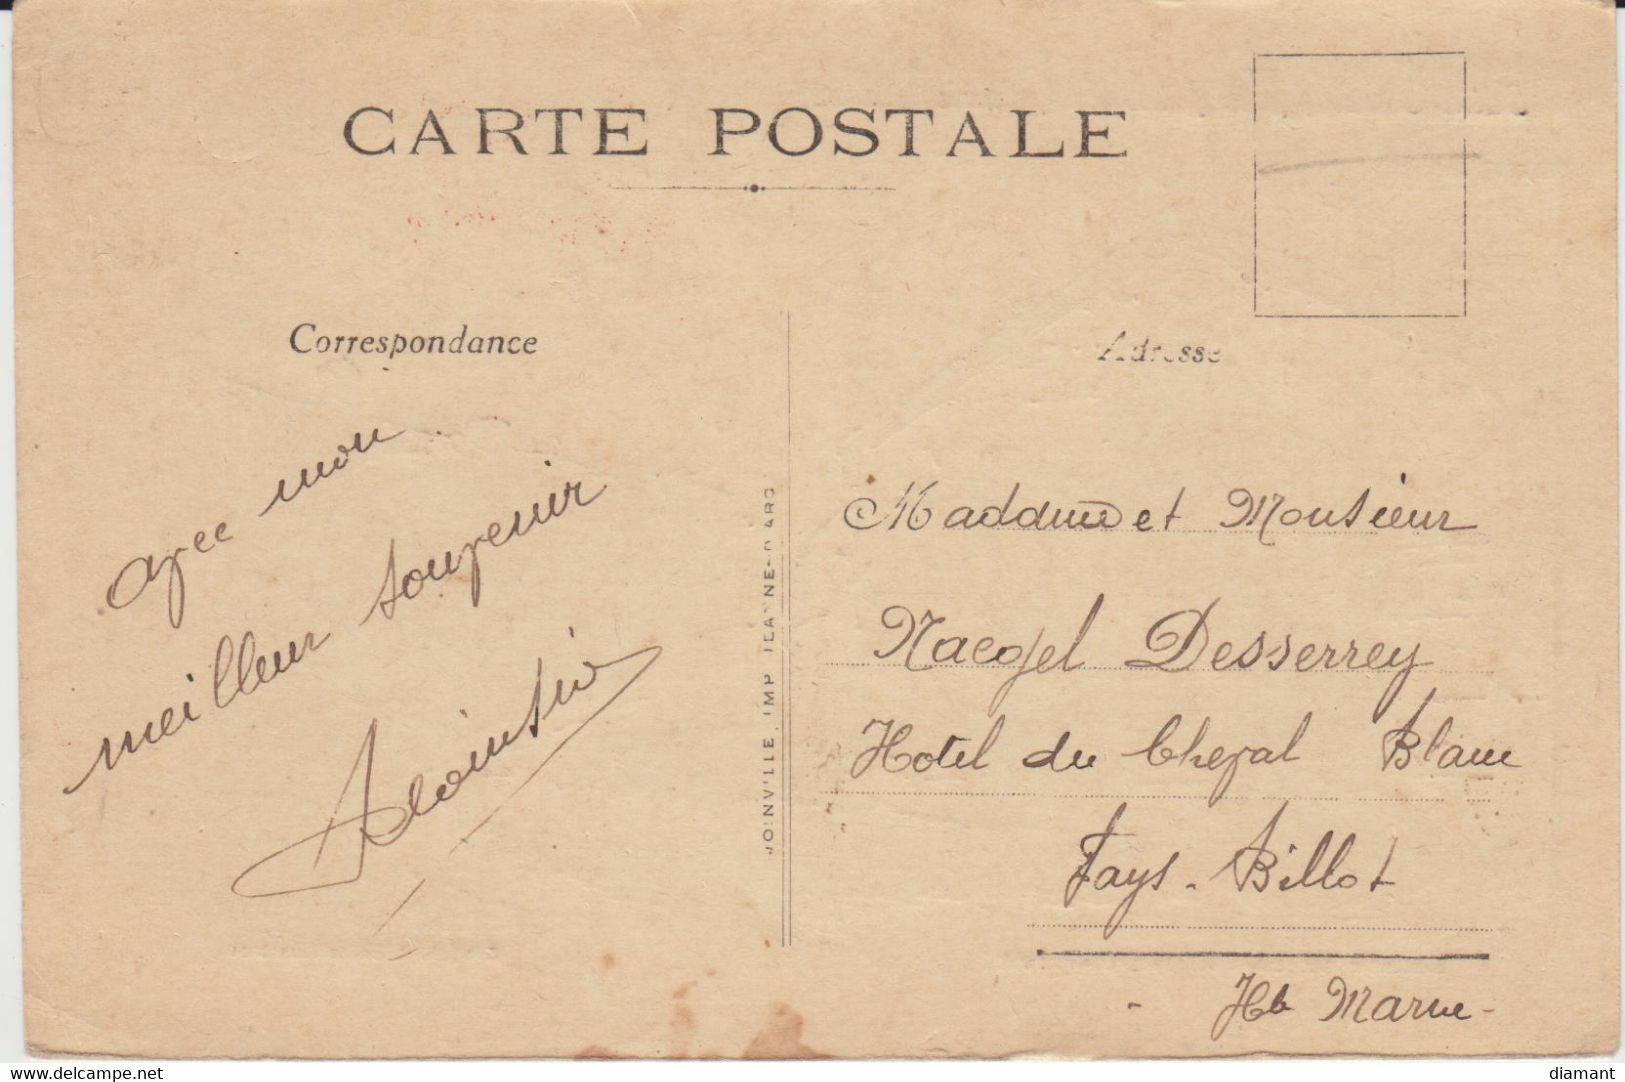 CARTE POSTALE
Correspondance
Adresse
avec mon
meilleur souvenir
JOINVILLE, IMP JEANNE-D'ARC
Maddame et Monsieur
Naegel Desserrey
Hotel du Cheval Blanc
Fays-Billot
- Hte Marne -
www.delcampe.net
diamant